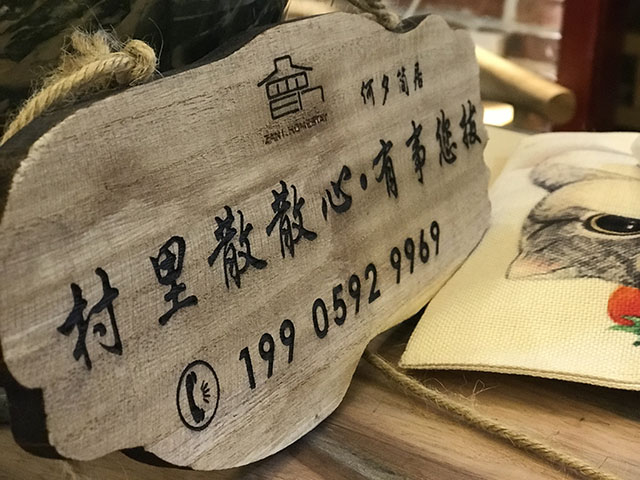 何夕简居
ZAN T. HOMESTAY
村里散散心·有事您拔
199 0592 9969